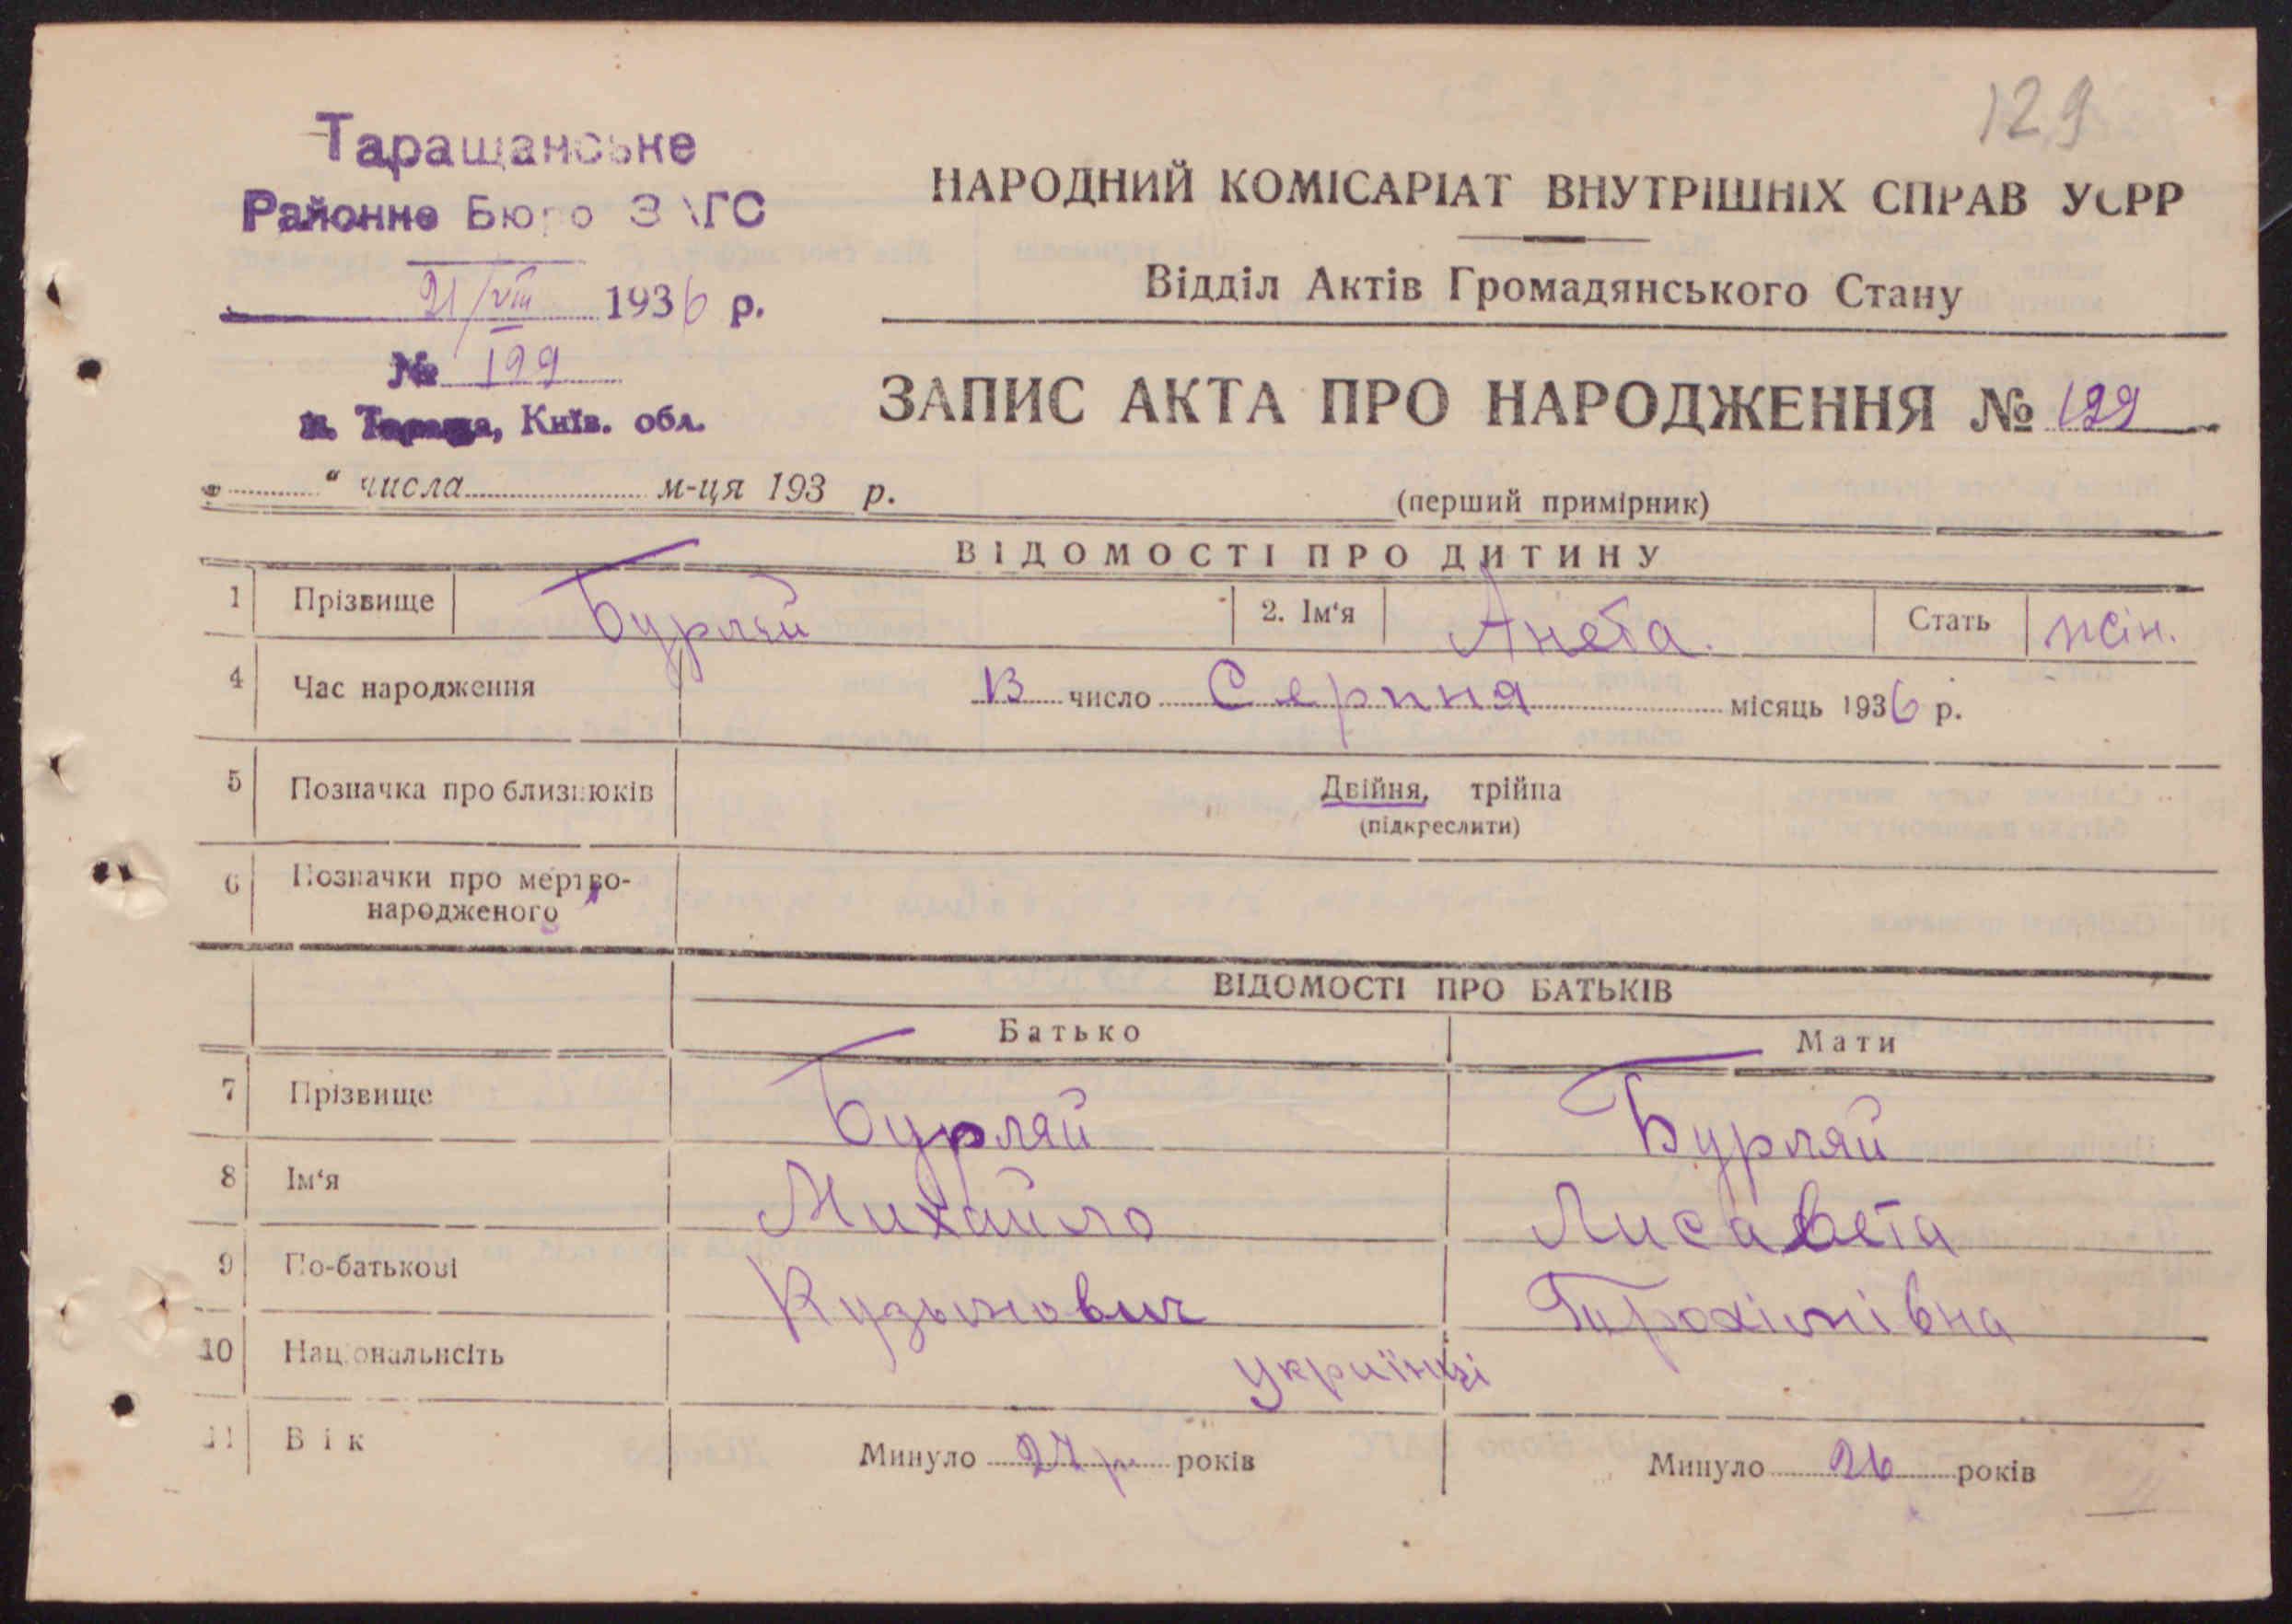 129
Таращанське
Районне Бюро ЗАГС
21/VIII 1936 р.
№ 199
м. Тараща, Київ. обл.
НАРОДНИЙ КОМІСАРІАТ ВНУТРІШНІХ СПРАВ УСРР
Відділ Актів Громадянського Стану
ЗАПИС АКТА ПРО НАРОДЖЕННЯ № 199
" " числа м-ця 193 р.
(перший примірник)
ВІДОМОСТІ ПРО ДИТИНУ
1 Прізвище Бурляй 2. Ім'я Анета. Стать жін.
4 Час народження 13 число Серпня місяць 1936 р.
5 Позначка про близнюків Двійня, трійна
(підкреслити)
6 Позначки про мертво-
народженого
ВІДОМОСТІ ПРО БАТЬКІВ
Батько Мати
7 Прізвище Бурляй Бурляй
8 Ім'я Михайло Лисавета
9 По-батькові Кузьмович
10 Національнсіть українці
11 Вік Минуло 27 років Минуло 26 років